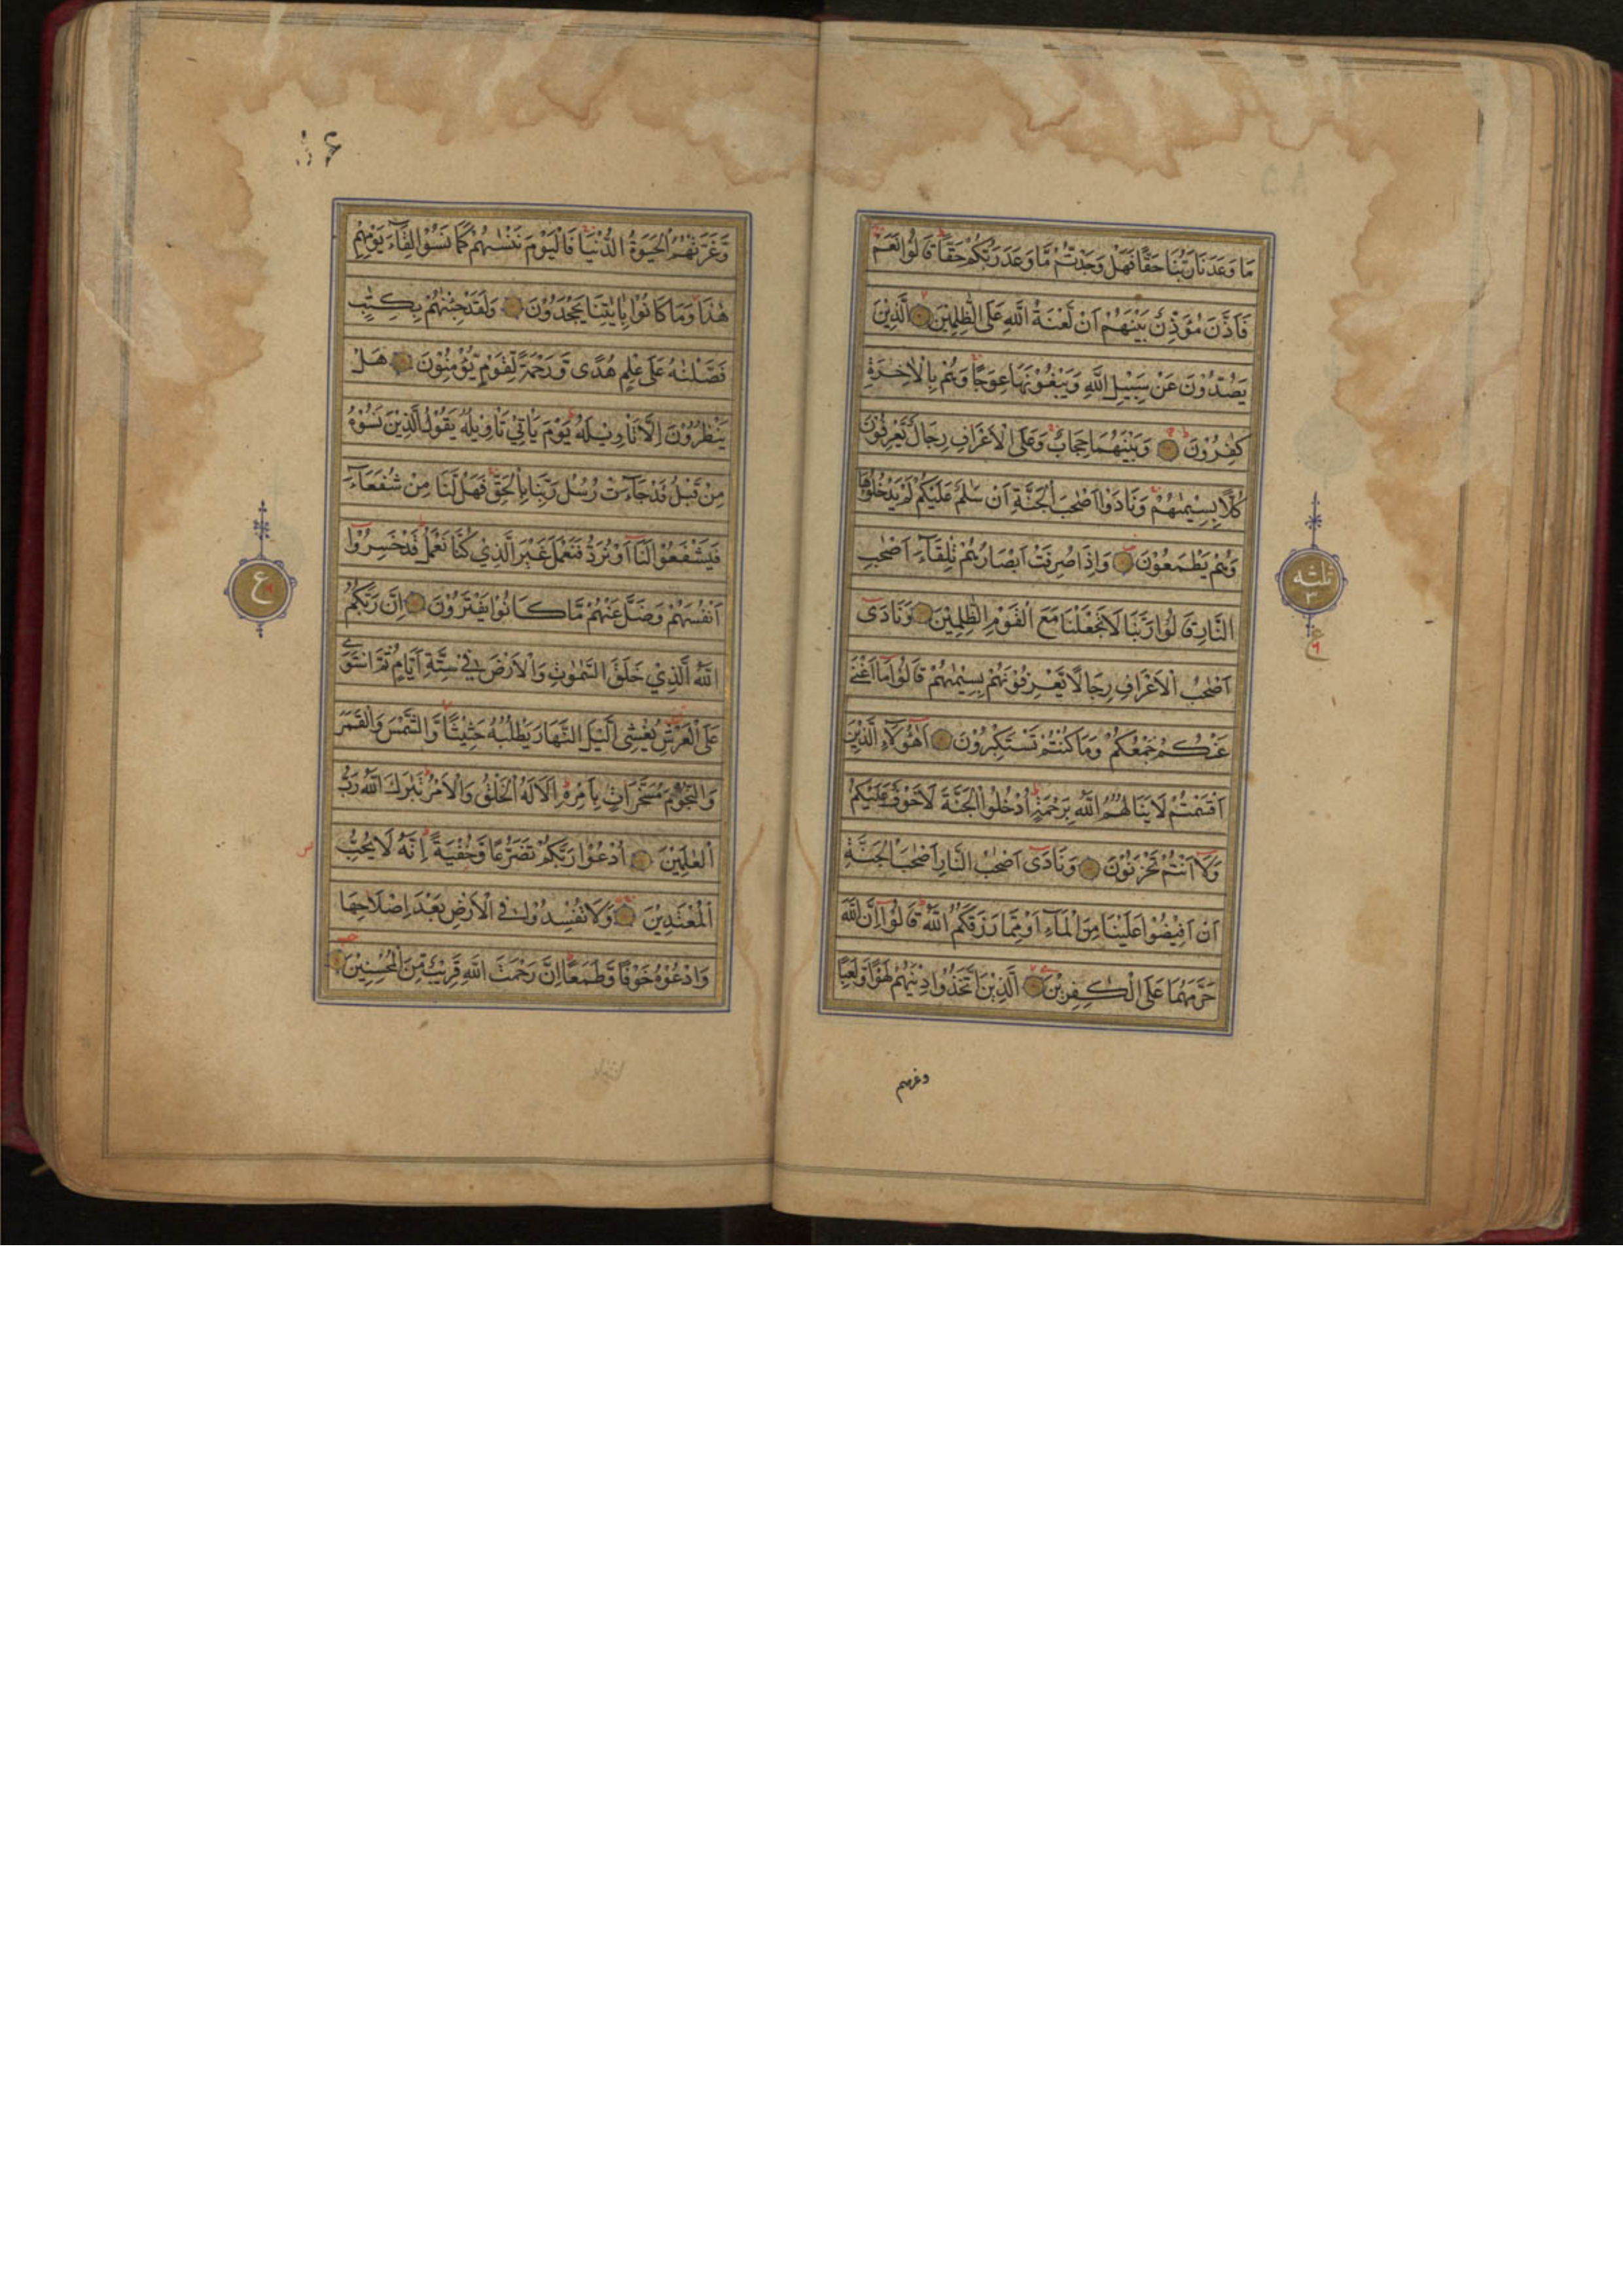 مَا وَعَدَنَا رَبُّنَا حَقًّا فَهَلْ وَجَدْتُّمْ مَّا وَعَدَ رَبُّكُمْ حَقًّا قَالُوْا نَعَمْ
فَاَذَّنَ مُؤَذِّنٌ بَيْنَهُمْ اَنْ لَّعْنَةُ اللّٰهِ عَلَى الظّٰلِمِيْنَ الَّذِيْنَ
يَصُدُّوْنَ عَنْ سَبِيْلِ اللّٰهِ وَيَبْغُوْنَهَا عِوَجًا وَهُمْ بِالْاٰخِرَةِ
كٰفِرُوْنَ وَبَيْنَهُمَا حِجَابٌ وَعَلَى الْاَعْرَافِ رِجَالٌ يَّعْرِفُوْنَ
كُلًّا بِسِيْمٰىهُمْ وَنَادَوْا اَصْحٰبَ الْجَنَّةِ اَنْ سَلٰمٌ عَلَيْكُمْ لَمْ يَدْخُلُوْهَا
وَهُمْ يَطْمَعُوْنَ وَاِذَا صُرِفَتْ اَبْصَارُهُمْ تِلْقَآءَ اَصْحٰبِ
النَّارِ قَالُوْا رَبَّنَا لَا تَجْعَلْنَا مَعَ الْقَوْمِ الظّٰلِمِيْنَ وَنَادٰى
اَصْحٰبُ الْاَعْرَافِ رِجَالًا يَّعْرِفُوْنَهُمْ بِسِيْمٰىهُمْ قَالُوْا مَا اَغْنٰى
عَنْكُمْ جَمْعُكُمْ وَمَا كُنْتُمْ تَسْتَكْبِرُوْنَ اَهٰؤُلَآءِ الَّذِيْنَ
اَقْسَمْتُمْ لَا يَنَالُهُمُ اللّٰهُ بِرَحْمَةٍ اُدْخُلُوا الْجَنَّةَ لَا خَوْفٌ عَلَيْكُمْ
وَلَا اَنْتُمْ تَحْزَنُوْنَ وَنَادٰى اَصْحٰبُ النَّارِ اَصْحٰبَ الْجَنَّةِ
اَنْ اَفِيْضُوْا عَلَيْنَا مِنَ الْمَآءِ اَوْ مِمَّا رَزَقَكُمُ اللّٰهُ قَالُوْا اِنَّ اللّٰهَ
حَرَّمَهُمَا عَلَى الْكٰفِرِيْنَ الَّذِيْنَ اتَّخَذُوْا دِيْنَهُمْ لَهْوًا وَّلَعِبًا
وغرتهم
ثلثه
ع
وَّغَرَّتْهُمُ الْحَيٰوةُ الدُّنْيَا فَالْيَوْمَ نَنْسٰىهُمْ كَمَا نَسُوْا لِقَآءَ يَوْمِهِمْ
هٰذَا وَمَا كَانُوْا بِاٰيٰتِنَا يَجْحَدُوْنَ وَلَقَدْ جِئْنٰهُمْ بِكِتٰبٍ
فَصَّلْنٰهُ عَلٰى عِلْمٍ هُدًى وَّرَحْمَةً لِّقَوْمٍ يُّؤْمِنُوْنَ هَلْ
يَنْظُرُوْنَ اِلَّا تَاْوِيْلَهُ يَوْمَ يَاْتِيْ تَاْوِيْلُهُ يَقُوْلُ الَّذِيْنَ نَسُوْهُ
مِنْ قَبْلُ قَدْ جَآءَتْ رُسُلُ رَبِّنَا بِالْحَقِّ فَهَلْ لَّنَا مِنْ شُفَعَآءَ
فَيَشْفَعُوْا لَنَا اَوْ نُرَدُّ فَنَعْمَلَ غَيْرَ الَّذِيْ كُنَّا نَعْمَلُ قَدْ خَسِرُوْا
اَنْفُسَهُمْ وَضَلَّ عَنْهُمْ مَّا كَانُوْا يَفْتَرُوْنَ اِنَّ رَبَّكُمُ
اللّٰهُ الَّذِيْ خَلَقَ السَّمٰوٰتِ وَالْاَرْضَ فِيْ سِتَّةِ اَيَّامٍ ثُمَّ اسْتَوٰى
عَلَى الْعَرْشِ يُغْشِى الَّيْلَ النَّهَارَ يَطْلُبُهُ حَثِيْثًا وَّالشَّمْسَ وَالْقَمَرَ
وَالنُّجُوْمَ مُسَخَّرَاتٍ بِاَمْرِهِ اَلَا لَهُ الْخَلْقُ وَالْاَمْرُ تَبٰرَكَ اللّٰهُ رَبُّ
الْعٰلَمِيْنَ اُدْعُوْا رَبَّكُمْ تَضَرُّعًا وَّخُفْيَةً اِنَّهُ لَا يُحِبُّ
الْمُعْتَدِيْنَ وَلَا تُفْسِدُوْا فِي الْاَرْضِ بَعْدَ اِصْلَاحِهَا
وَادْعُوْهُ خَوْفًا وَّطَمَعًا اِنَّ رَحْمَتَ اللّٰهِ قَرِيْبٌ مِّنَ الْمُحْسِنِيْنَ
ع